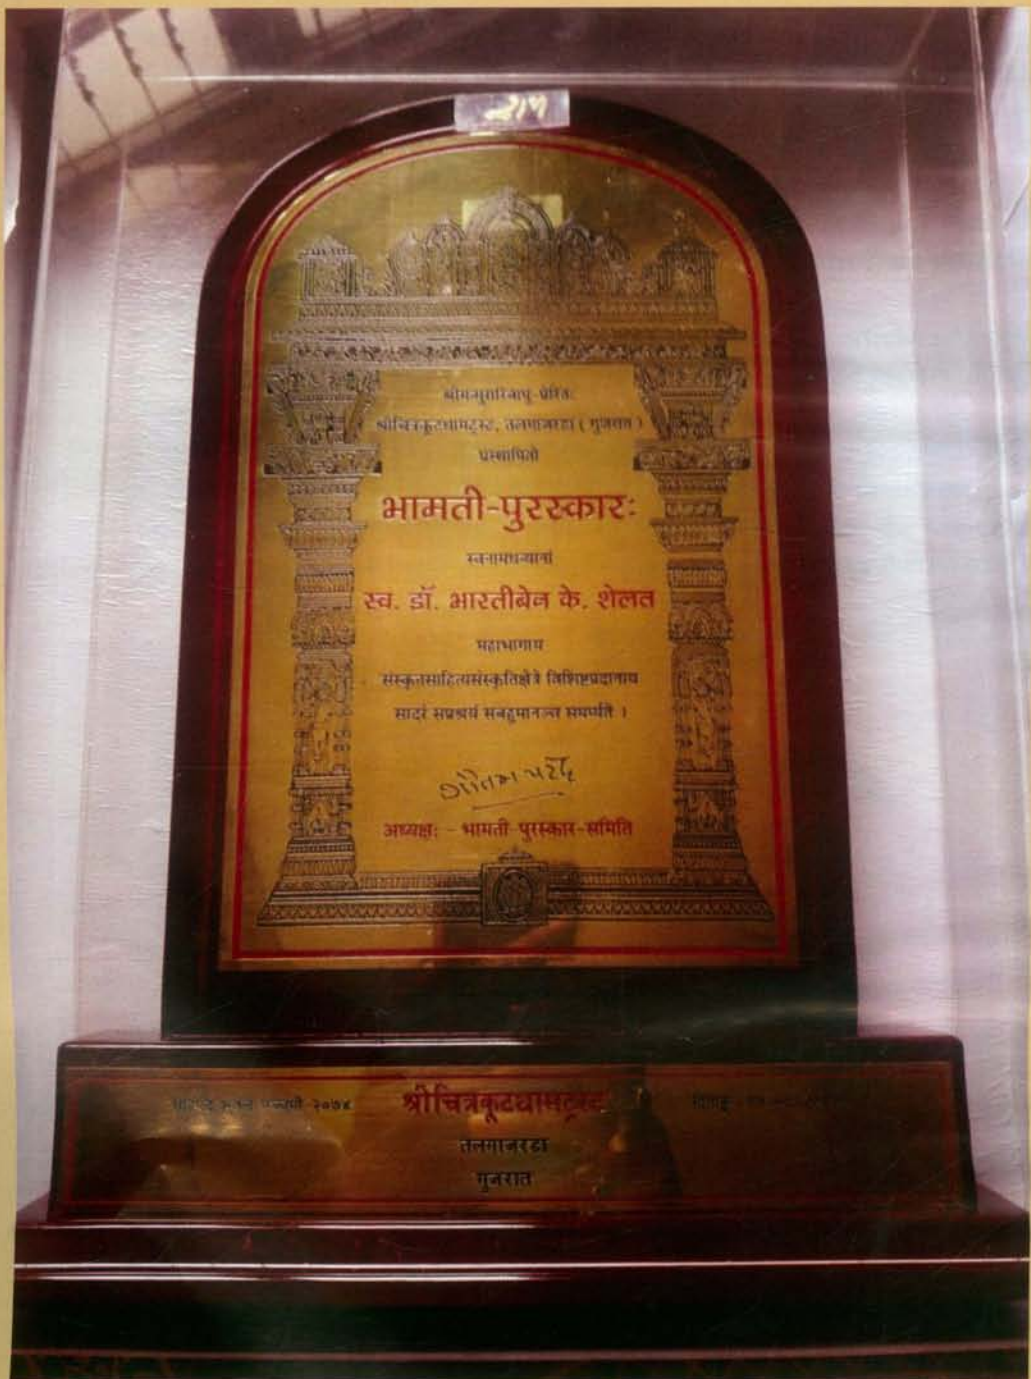 श्रीमन्मुरारिबापू-प्रेरितः
श्रीचित्रकूटधामट्रस्ट, तलगाजरडा ( गुजरात )
प्रस्थापितो
भामती-पुरस्कारः
स्वनामधन्यानां
स्व. डॉ. भारतीबेन के. शेलत
महाभागाय
संस्कृतसाहित्यसंस्कृतिक्षेत्रे विशिष्टप्रदानाय
सादरं सप्रश्रयं सबहुमानञ्च समर्प्यते ।
अध्यक्षः - भामती-पुरस्कार-समिति
२०७४
श्रीचित्रकूटधामट्रस्ट
तलगाजरडा
गुजरात